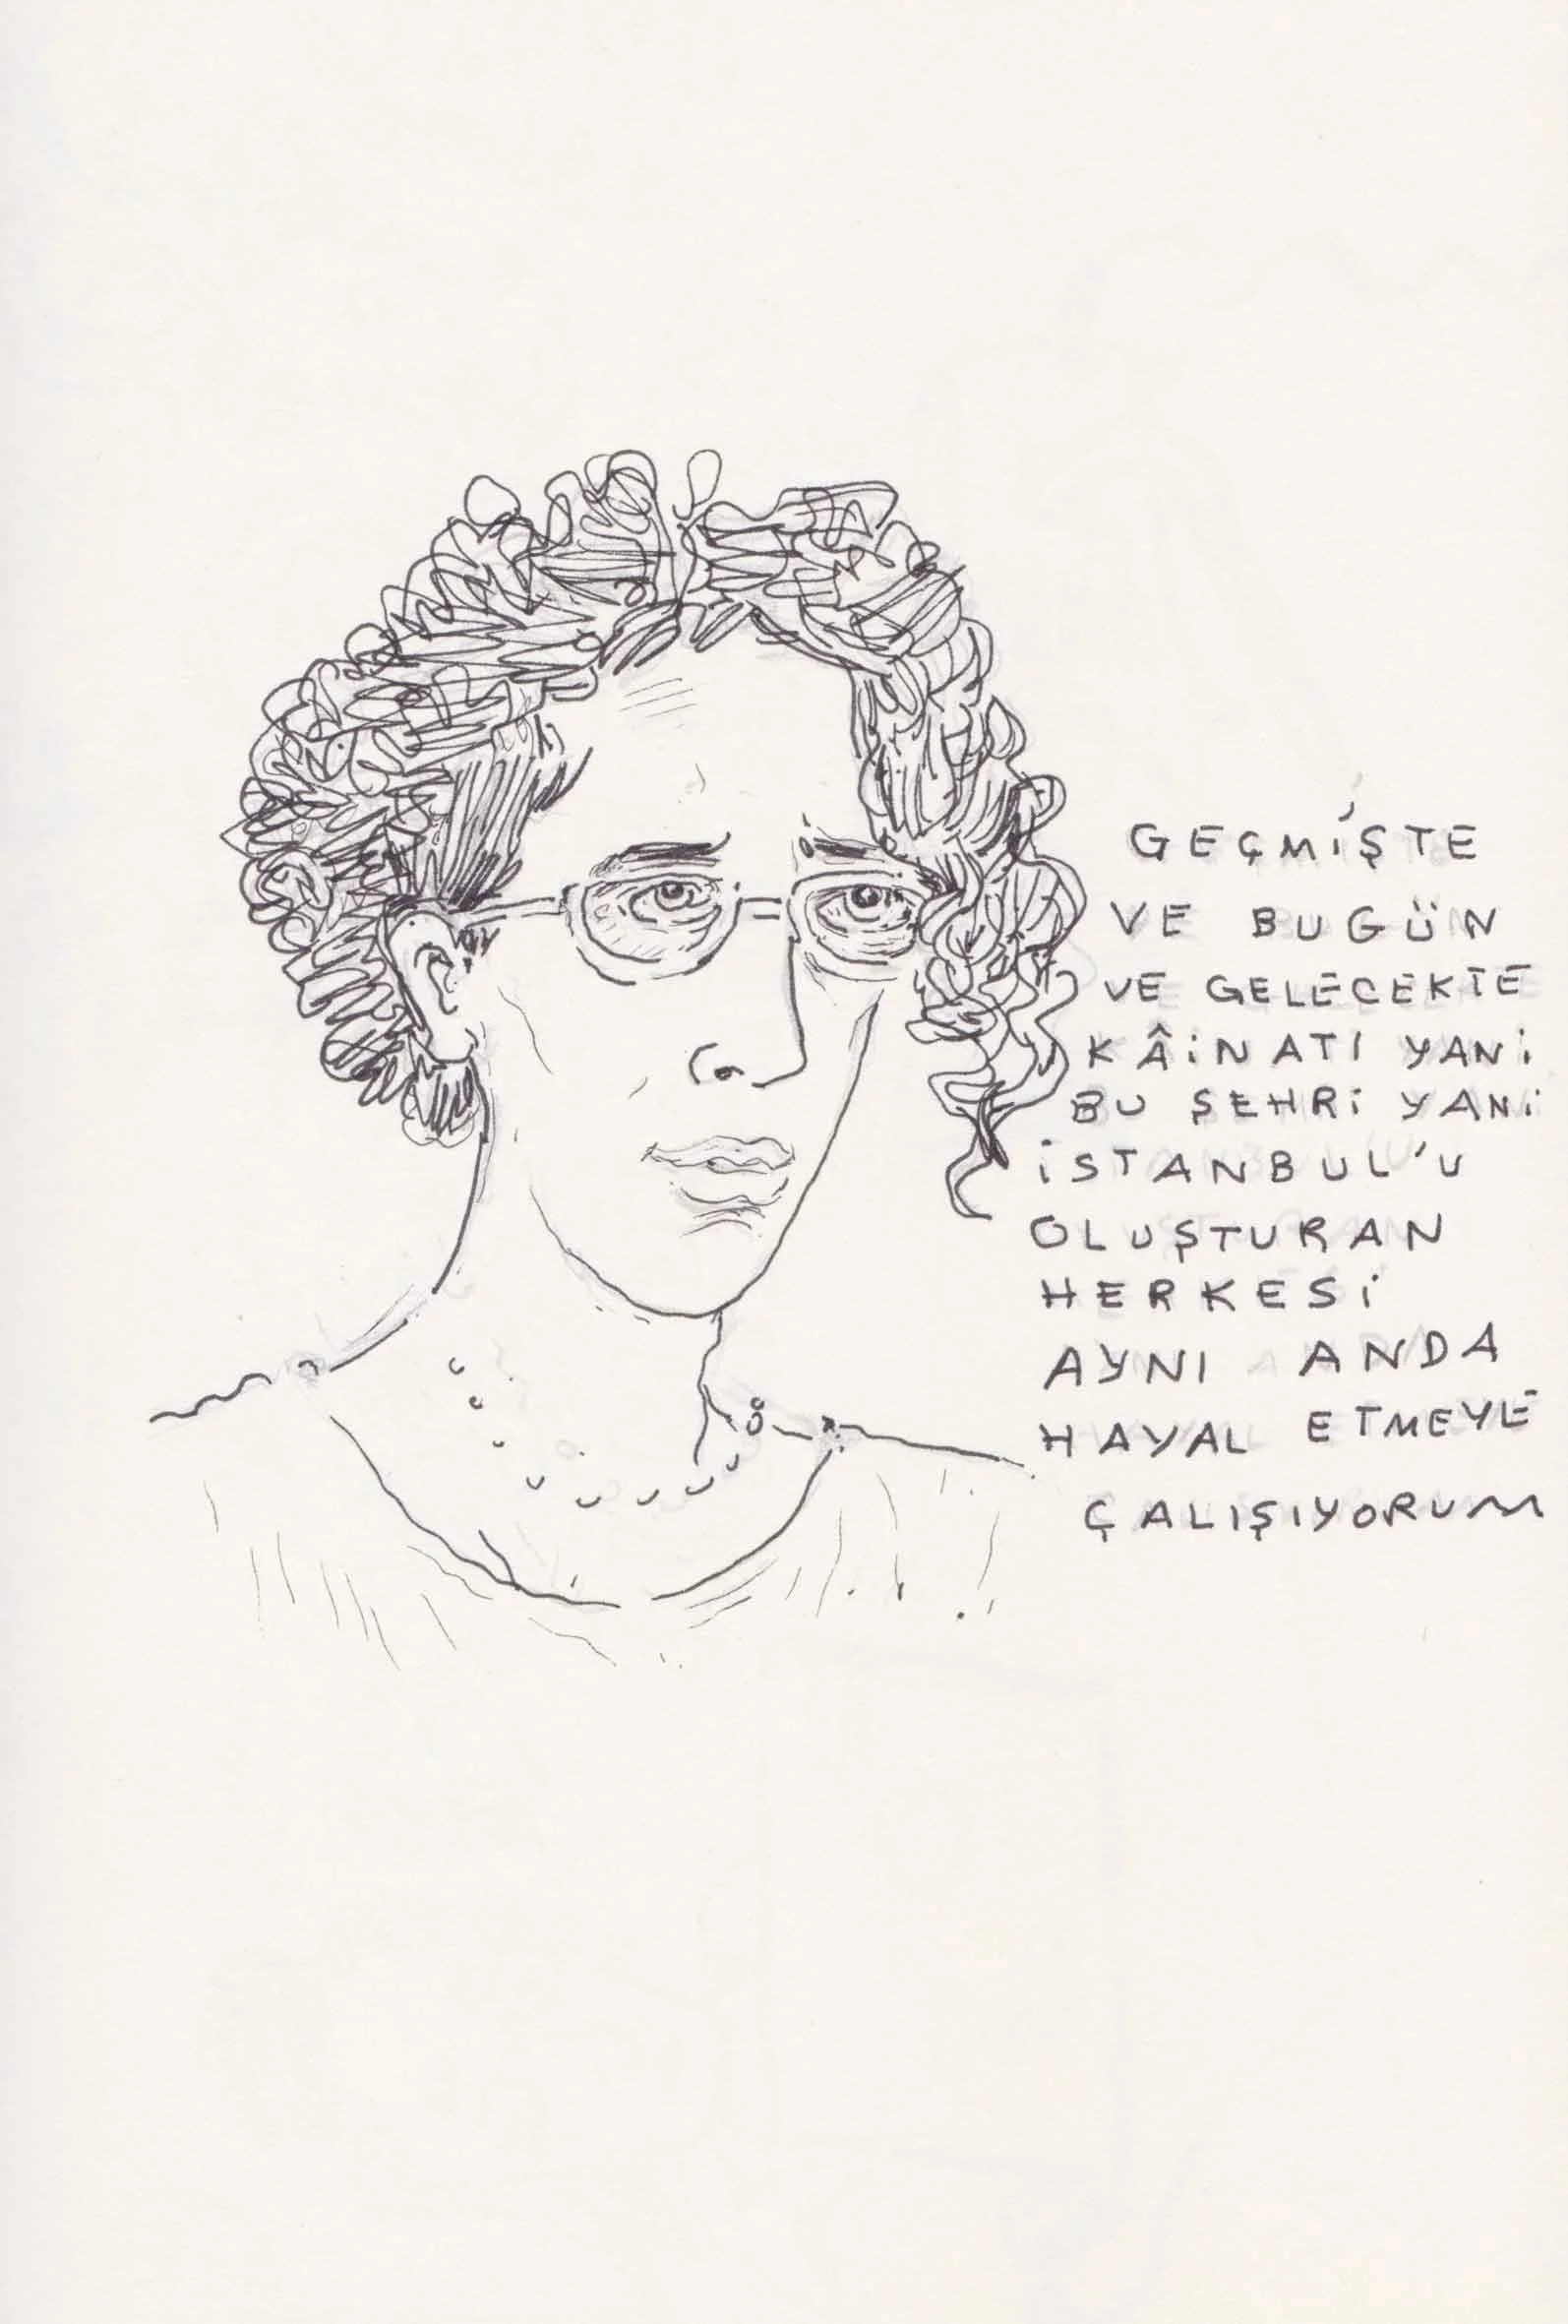 GEÇMİŞTE
VE BUGÜN
VE GELECEKTE
KÂİNATI YANİ
BU ŞEHRİ YANİ
İSTANBUL'U
OLUŞTURAN
HERKESİ
AYNI ANDA
HAYAL ETMEYE
ÇALIŞIYORUM